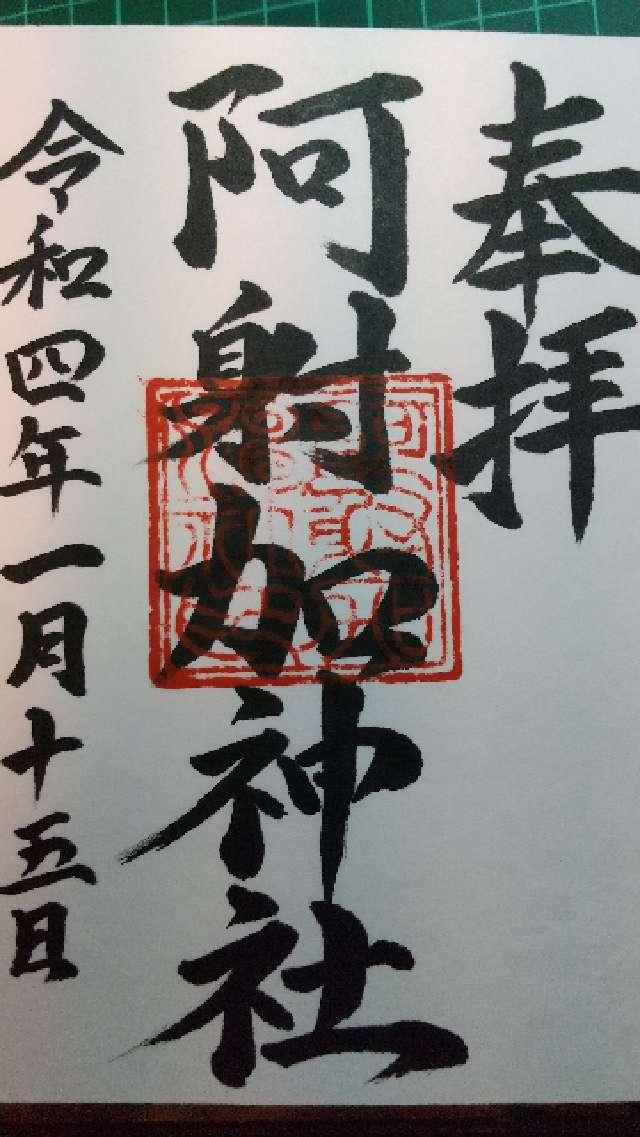 奉拝
阿射加神社
令和四年一月十五日